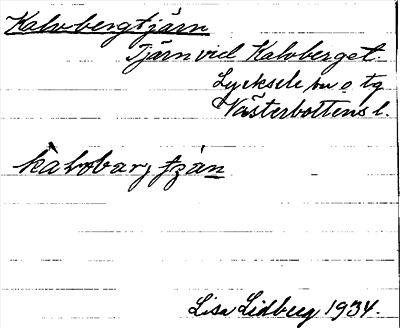 Kalvbergtjärn
Tjärn vid Kalvberget.
Lycksele sn o tg
Västerbottens l.
kàlvbarj, tjän
Lisa Lidberg 1934.